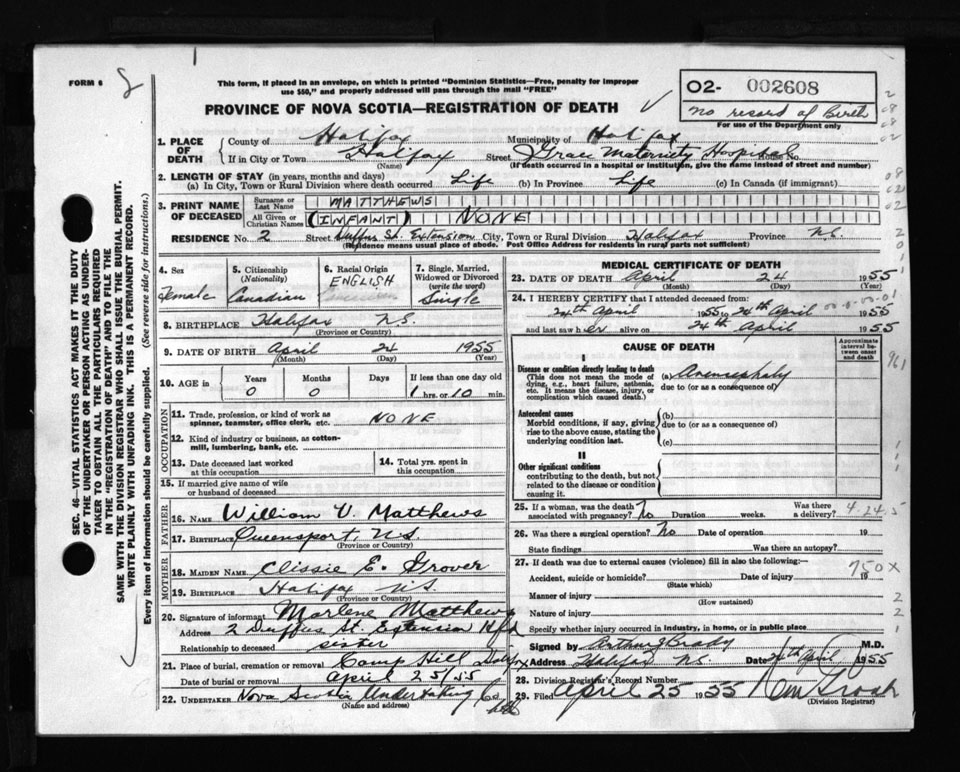 FORM 6
This form, if placed in an envelope, on which is printed "Dominion Statistics—Free, penalty for improper
use $50," and properly addressed will pass through the mail "FREE"
PROVINCE OF NOVA SCOTIA—REGISTRATION OF DEATH
02- 002608
No record of Birth
For use of the Department only
1. PLACE OF DEATH
County of Halifax Municipality of Halifax
If in City or Town Halifax Street Grace Maternity Hospital House No.
(Name) (If death occurred in a hospital or institution, give the name instead of street and number)
2. LENGTH OF STAY (in years, months and days)
(a) In City, Town or Rural Division where death occurred Life (b) In Province Life (c) In Canada (if immigrant)
3. PRINT NAME OF DECEASED
Surname or Last Name MATTHEWS
All Given or Christian Names (INFANT) NONE
RESIDENCE No. 2 Street Duffus St. Extension City, Town or Rural Division Halifax Province N.S.
(Residence means usual place of abode. Post Office Address for residents in rural parts not sufficient)
4. Sex Female
5. Citizenship (Nationality) Canadian
6. Racial Origin ENGLISH
7. Single, Married, Widowed or Divorced (write the word) Single
8. BIRTHPLACE Halifax N.S.
(Province or Country)
9. DATE OF BIRTH April 24 1955
(Month) (Day) (Year)
10. AGE in Years 0 Months 0 Days If less than one day old 1 hrs. or 10 min.
OCCUPATION
11. Trade, profession, or kind of work as spinner, teamster, office clerk, etc. NONE
12. Kind of industry or business, as cotton-mill, lumbering, bank, etc.
13. Date deceased last worked at this occupation
14. Total yrs. spent in this occupation
15. If married give name of wife or husband of deceased
FATHER
16. NAME William V. Matthews
17. BIRTHPLACE Queensport, N.S.
(Province or Country)
MOTHER
18. MAIDEN NAME Clissie E. Grover
19. BIRTHPLACE Halifax N.S.
(Province or Country)
20. Signature of informant Marlene Matthews
Address 2 Duffus St. Extension Hfx
Relationship to deceased sister
21. Place of burial, cremation or removal Camp Hill Halifax
Date of burial or removal April 25/55
22. UNDERTAKER Nova Scotia Undertaking Co
(Name and address)
MEDICAL CERTIFICATE OF DEATH
23. DATE OF DEATH April 24 1955
(Month) (Day) (Year)
24. I HEREBY CERTIFY that I attended deceased from
24th April 1955 to 24th April 1955
and last saw her alive on 24th April 1955
CAUSE OF DEATH
Approximate interval between onset and death
I
Disease or condition directly leading to death
(This does not mean the mode of dying, e.g., heart failure, asthenia, etc. It means the disease, injury, or complication which caused death.)
(a) Anencephaly
due to (or as a consequence of)
Antecedent causes
Morbid conditions, if any, giving rise to the above cause, stating the underlying condition last.
(b)
due to (or as a consequence of)
(c)
II
Other significant conditions
contributing to the death, but not related to the disease or condition causing it.
25. If a woman, was the death associated with pregnancy? No Duration weeks. Was there a delivery? 4.24.5
26. Was there a surgical operation? No Date of operation 19
State findings Was there an autopsy?
27. If death was due to external causes (violence) fill in also the following:— 750X
Accident, suicide or homicide? Date of injury 19
(State which)
Manner of injury
(How sustained)
Nature of injury
Specify whether injury occurred in industry, in home, or in public place
Signed by Arthur J Brady M.D.
Address Halifax N.S. Date 24th April 1955
28. Division Registrar's Record Number
29. Filed April 25 1955
(Division Registrar)
SEC. 46—VITAL STATISTICS ACT MAKES IT THE DUTY
OF THE UNDERTAKER OR PERSON ACTING AS UNDER-
TAKER TO OBTAIN ALL THE PARTICULARS REQUIRED
IN THE "REGISTRATION OF DEATH" AND TO FILE THE
SAME WITH THE DIVISION REGISTRAR WHO SHALL ISSUE THE BURIAL PERMIT.
WRITE PLAINLY WITH UNFADING INK. THIS IS A PERMANENT RECORD.
Every item of information should be carefully supplied. (See reverse side for instructions.)